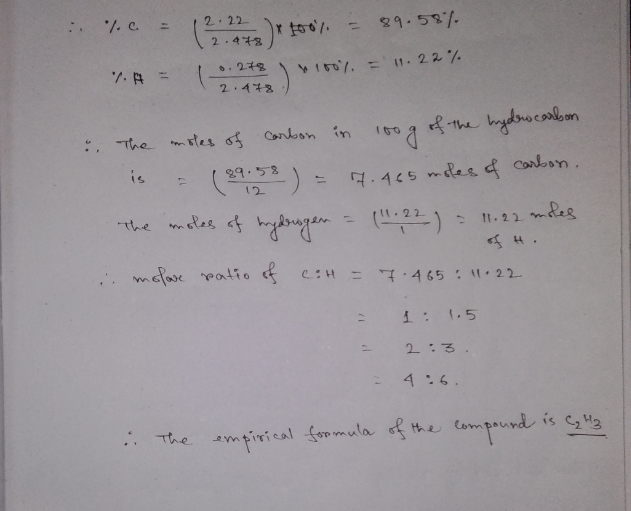 ∴ % C = (2.22 / 2.478) × 100% = 89.58%
% H = (0.278 / 2.478) × 100% = 11.22%
∴ The moles of carbon in 100 g of the hydrocarbon
is = (89.58 / 12) = 7.465 moles of carbon.
The moles of hydrogen = (11.22 / 1) = 11.22 moles
of H.
∴ molar ratio of C:H = 7.465 : 11.22
= 1 : 1.5
= 2 : 3.
= 4 : 6.
∴ The empirical formula of the compound is C₂H₃